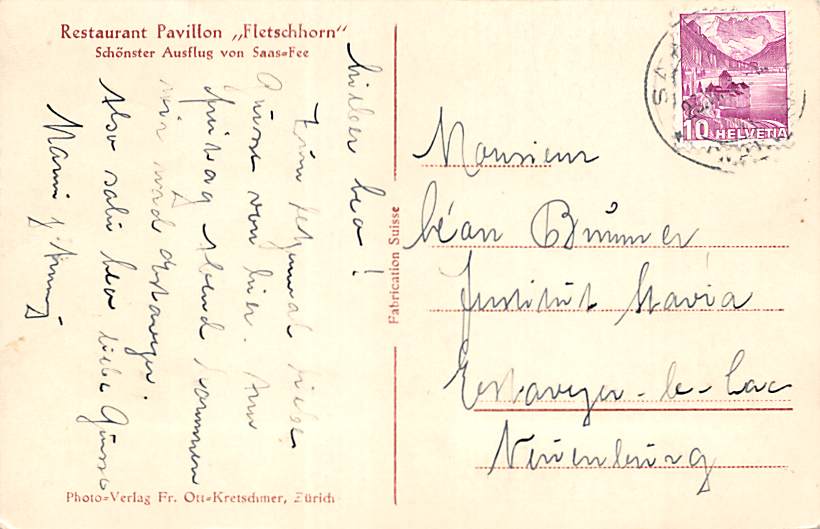 Restaurant Pavillon „Fletschhorn“
Schönster Ausflug von Saas=Fee
Lieber Leo!
Zum letzenmal liebe
Grüsse von hier. Am
Freitag Abend kommen
wir nach Estavayer.
Also salü Leo liebe Grüsse
Mami
Fabrication Suisse
10 HELVETIA
Monsieur
Léon Brunner
Institut Stavia
Estavayer-le-Lac
Neuenburg
Photo=Verlag Fr. Ott=Kretschmer, Zürich